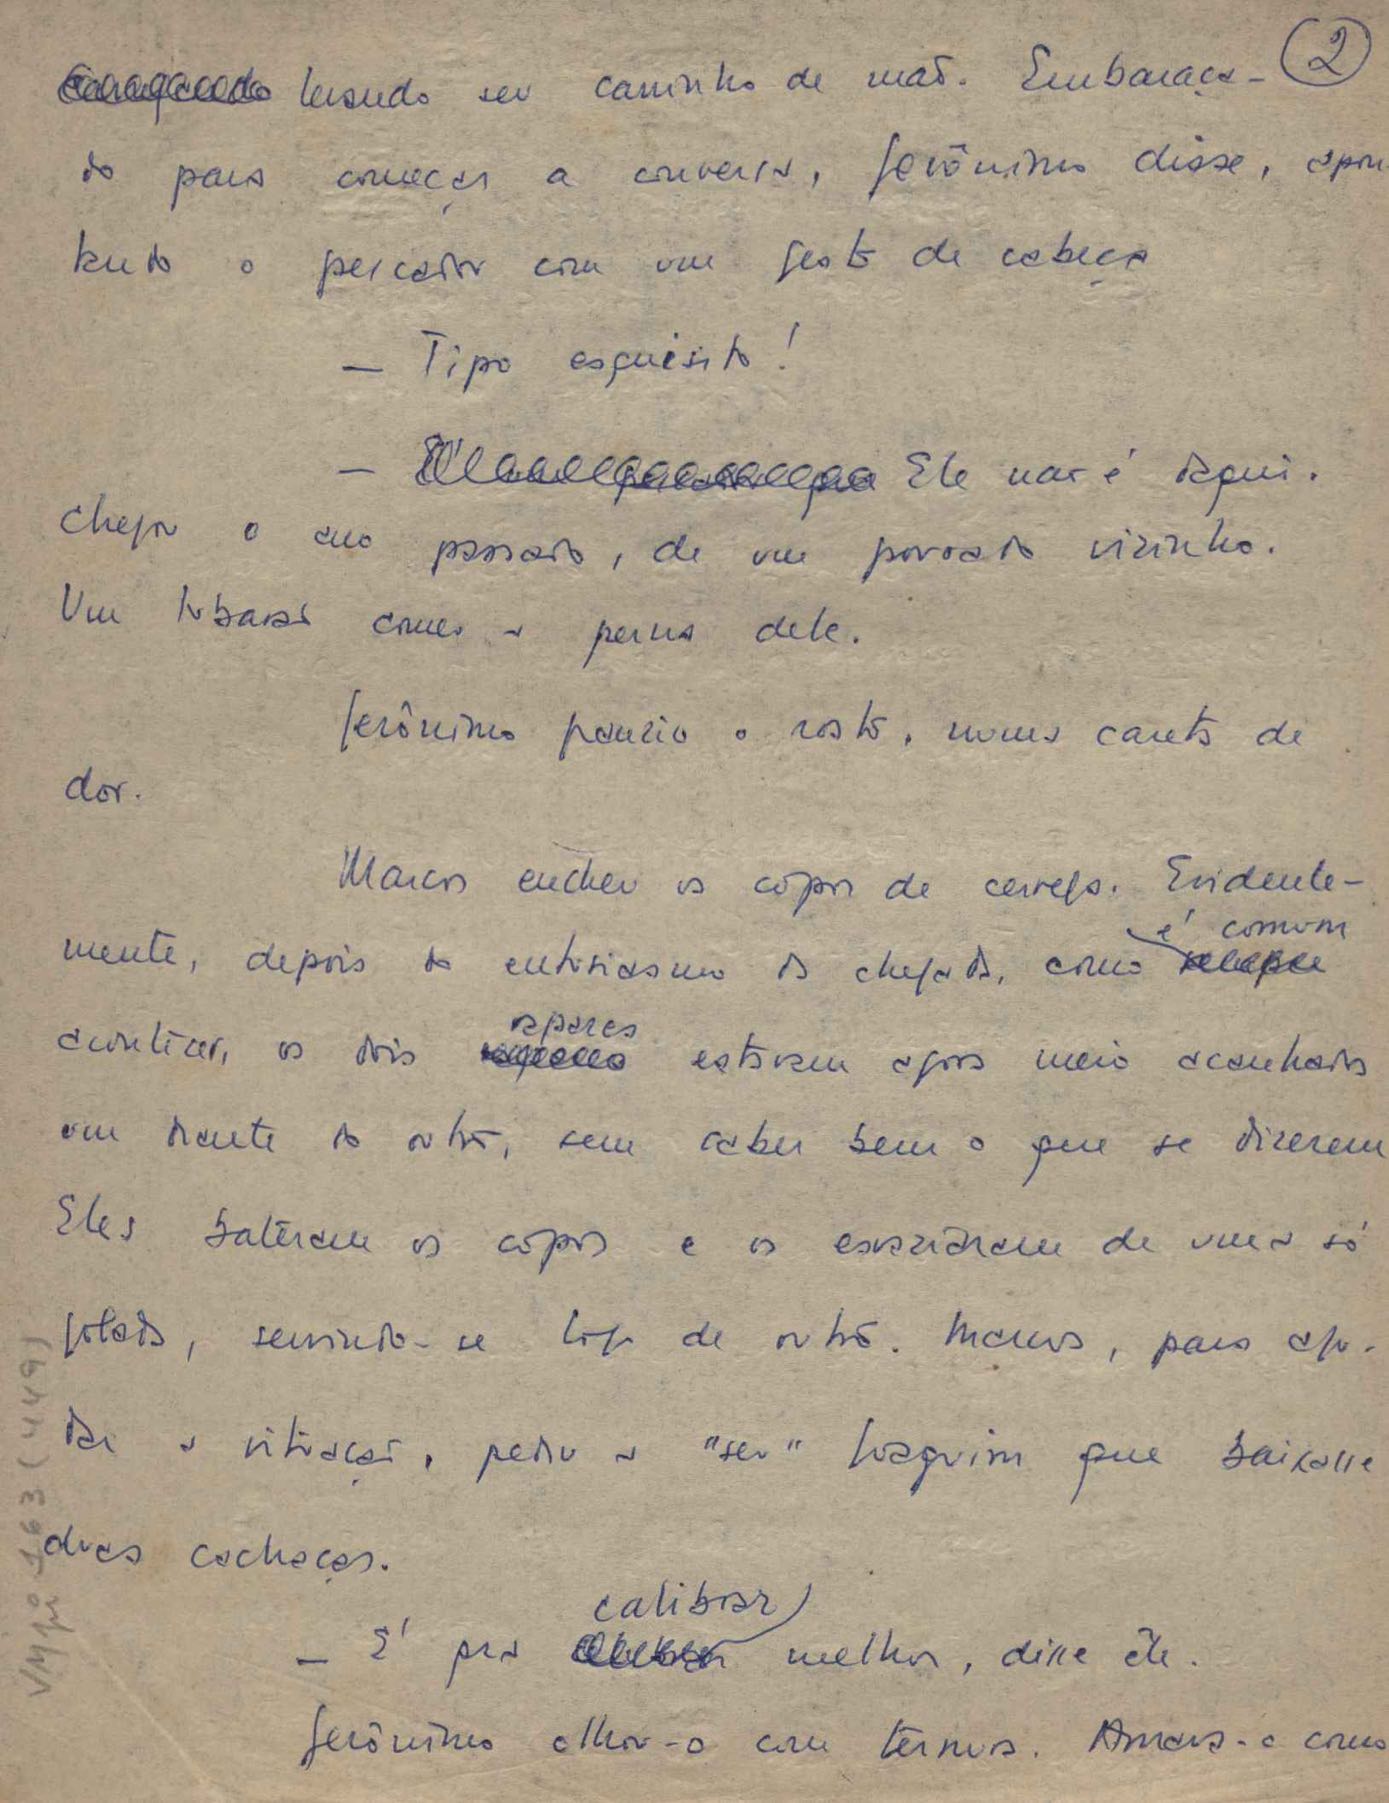 2
levando seu carrinho de mão. Embaraça-
do para começar a conversa, Jerônimo disse, apon
tando o pescador com um gesto de cabeça
— Tipo esquisito!
— Ele não é daqui.
Chegou o ano passado, de um povoado vizinho.
Um tubarão comeu a perna dele.
Jerônimo franziu o rosto, numa careta de
dor.
Marcos encheu os copos de cerveja. Evidente-
é comum
mente, depois do entusiasmo da chegada, como
rapazes
acontecer, os dois estavam agora meio acanhados
um diante do outro, sem saber bem o que se dizerem
Eles bateram os copos e os esvaziaram de uma só
golada, servindo-se logo de outro. Marcos, para aju-
dar a situação, pediu a "seu" Joaquim que baixasse
duas cachaças.
calibrar
— É pra melhor, disse êle.
Jerônimo olhou-o com ternura. Amava-o como
VMpi 163 (449)